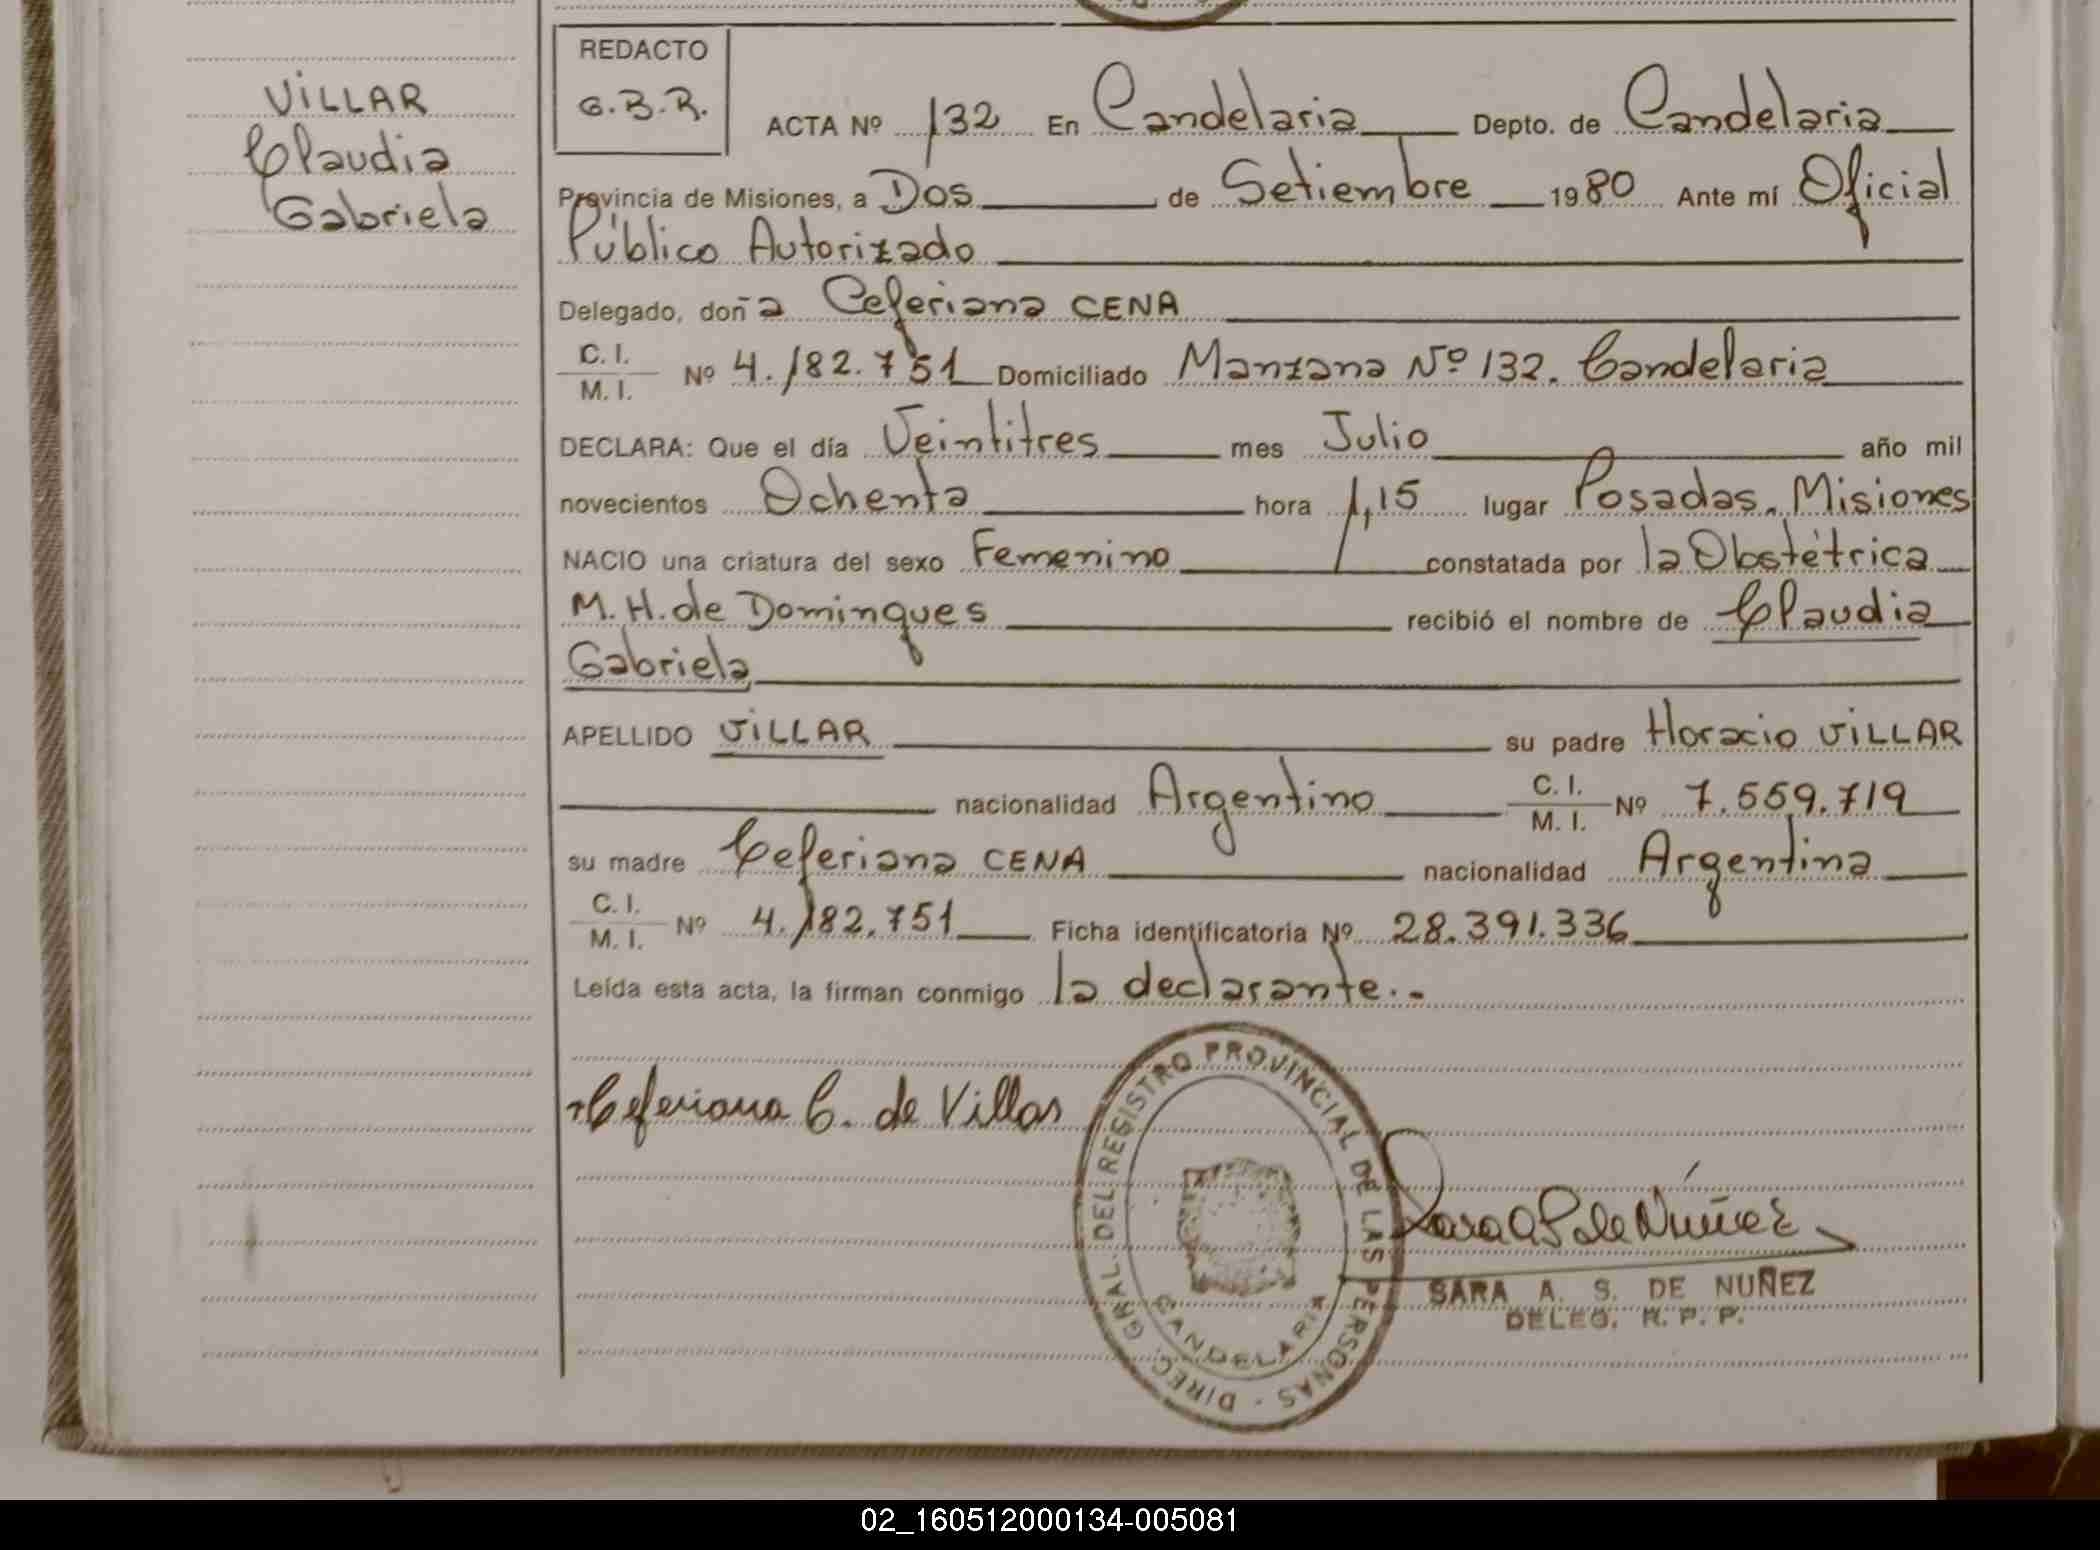 VILLAR
Claudia
Gabriela
REDACTO
G.B.R.
ACTA Nº 132 En Candelaria Depto. de Candelaria
Provincia de Misiones, a Dos de Setiembre 1980 Ante mí Oficial
Público Autorizado
Delegado, doña Ceferiana CENA
C. I.
M. I. Nº 4.182.751 Domiciliado Manzana Nº 132. Candelaria
DECLARA: Que el día Veintitres mes Julio año mil
novecientos Ochenta hora 1,15 lugar Posadas. Misiones
NACIO una criatura del sexo Femenino constatada por la Obstétrica
M. H. de Domingues recibió el nombre de Claudia
Gabriela
APELLIDO VILLAR su padre Horacio VILLAR
nacionalidad Argentino C. I.
M. I. Nº 7.559.719
su madre Ceferiana CENA nacionalidad Argentina
C. I.
M. I. Nº 4.182.751 Ficha identificatoria Nº 28.391.336
Leída esta acta, la firman conmigo la declarante.-
Ceferiana C. de Villar
DIREC. GRAL. DEL REGISTRO PROVINCIAL DE LAS PERSONAS
CANDELARIA
Sara A S de Núñez
SARA A. S. DE NUÑEZ
DELEG. R. P. P.
02_160512000134-005081